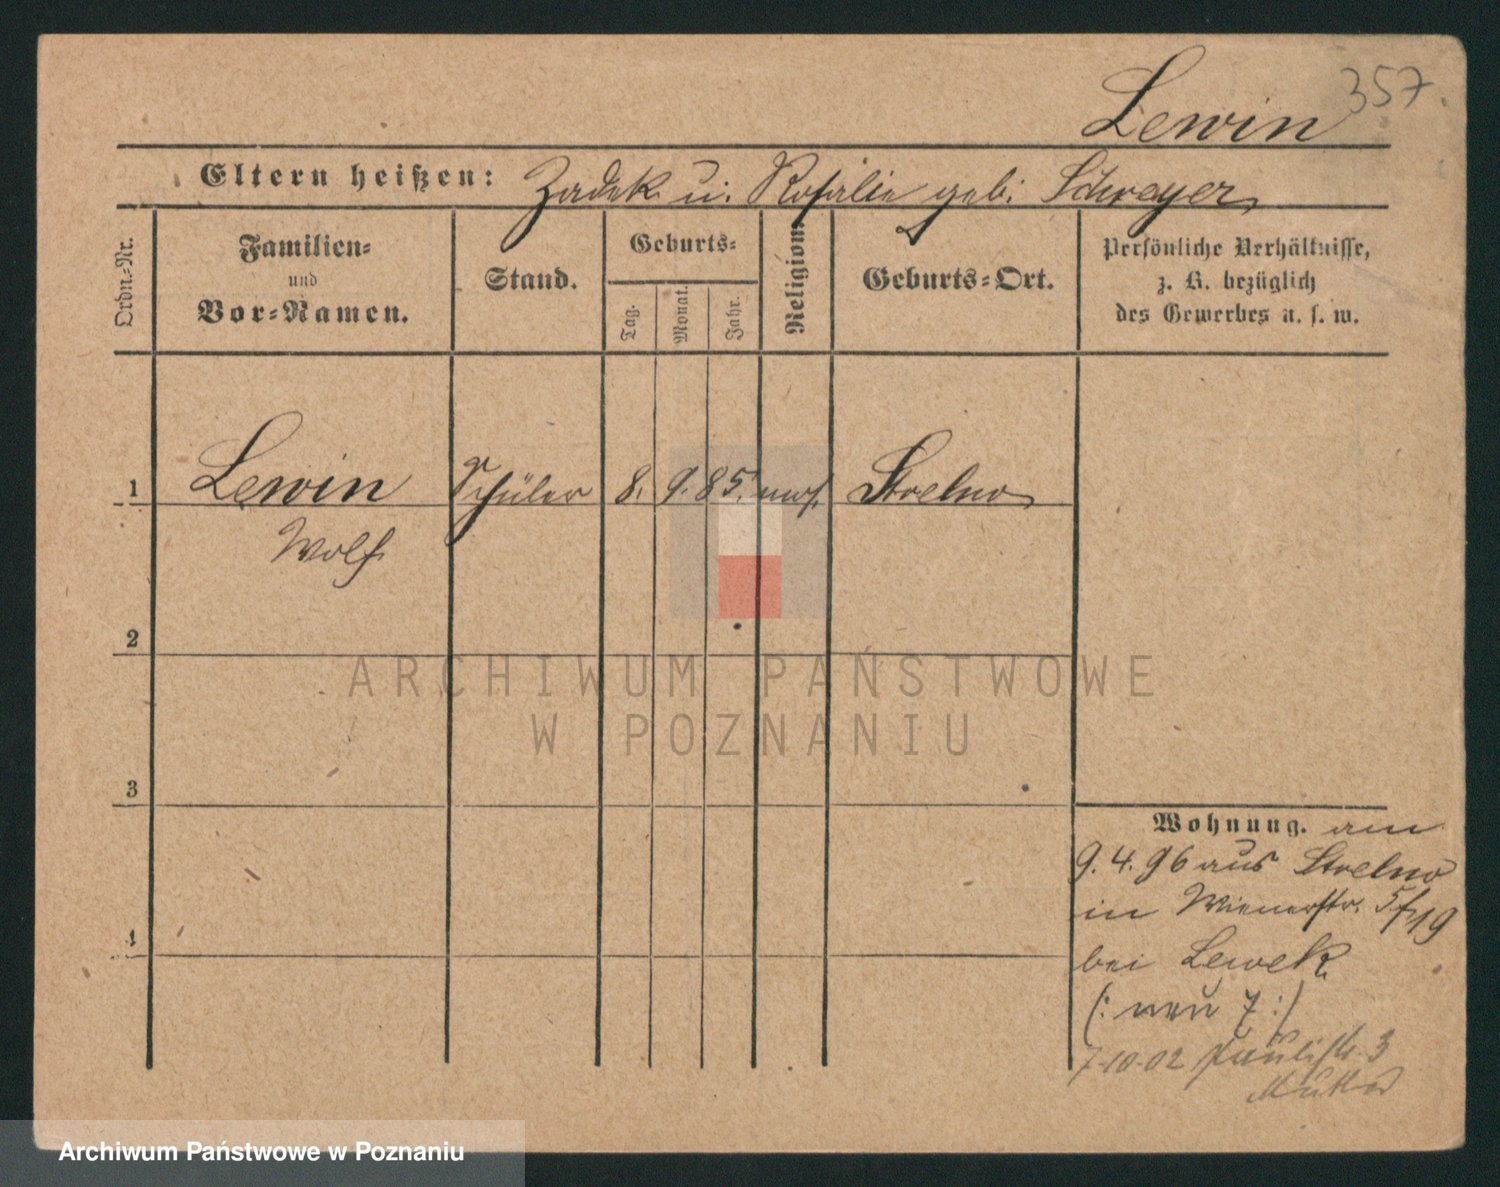 357.
Lewin
Eltern heißen: Zadek u. Rosalie geb. Schreyer
Ordn.-Nr.
Familien-
und
Vor-Namen.
Stand.
Geburts-
Tag.
Monat.
Jahr.
Religion.
Geburts-Ort.
Persönliche Verhältnisse,
z. B. bezüglich
des Gewerbes u. s. w.
1 Lewin Schüler 8. 9. 85. mos. Strelno
Wolf
2
3
4
Wohnung. am
9.4.96 aus Strelno
in Wienerstr. 5/19
bei Lewek
(: neu 7 :)
7-10-02 Paulistr. 3
Mutter
ARCHIWUM PAŃSTWOWE
W POZNANIU
Archiwum Państwowe w Poznaniu